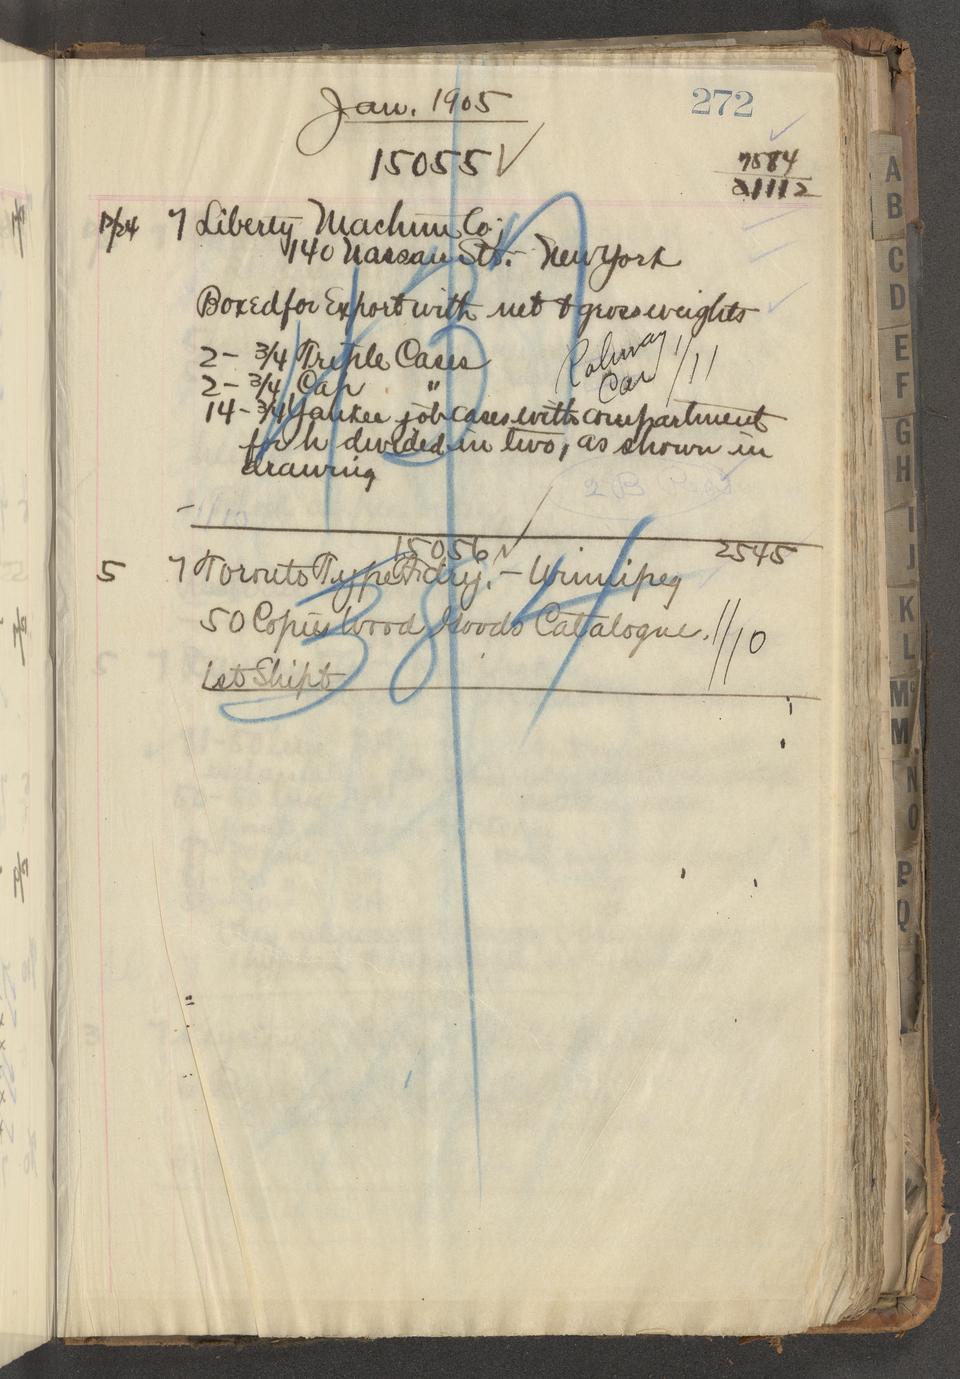 Jan. 1905
272
15055 √
7584
21112
12/24 7 Liberty Machine Co;
140 Nassau St. - New York
Boxed for Export with net & gross weights
2 - 3/4 Triple Cases
2 - 3/4 Cap "
Car 1/11
14 - 3/4 Yankee job cases with compartment
for h divided in two, as shown in
drawing
15056 √
2545
5 7 Toronto Type Fdry. - Winnipeg
50 Copies Wood Goods Catalogue. 1/10
1st Shipt
384
A
B
C
D
E
F
G
H
I
J
K
L
M
M
N
O
P
Q